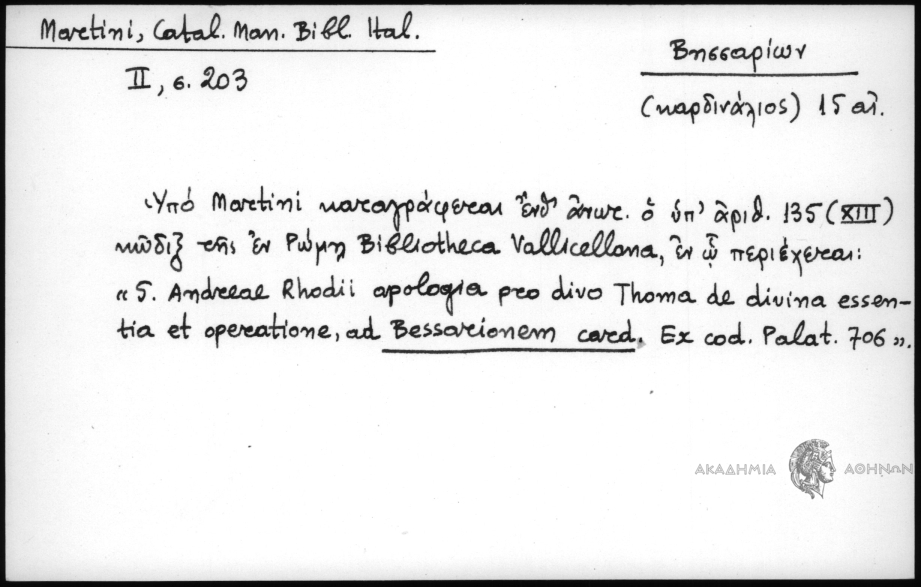 Martini, Catal. Man. Bibl. Ital.
II, σ. 203
Βησσαρίων
(καρδινάλιος) 15 αἰ.
Ὑπό Martini καταγράφεται ἔνθ' ἄνωτ. ὁ ὑπ' ἀριθ. 135 (XIII)
κῶδιξ τῆς ἐν Ρώμῃ Bibliotheca Vallicellana, ἐν ᾧ περιέχεται:
« 5. Andreae Rhodii apologia pro divo Thoma de divina essen-
tia et operatione, ad Bessarionem card. Ex cod. Palat. 706 ».
ΑΚΑΔΗΜΙΑ ΑΘΗΝΩΝ